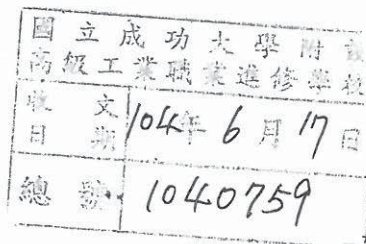 國立成功大學附設
高級工業職業進修學校
收文日期 104年6月17日
總號 1040759